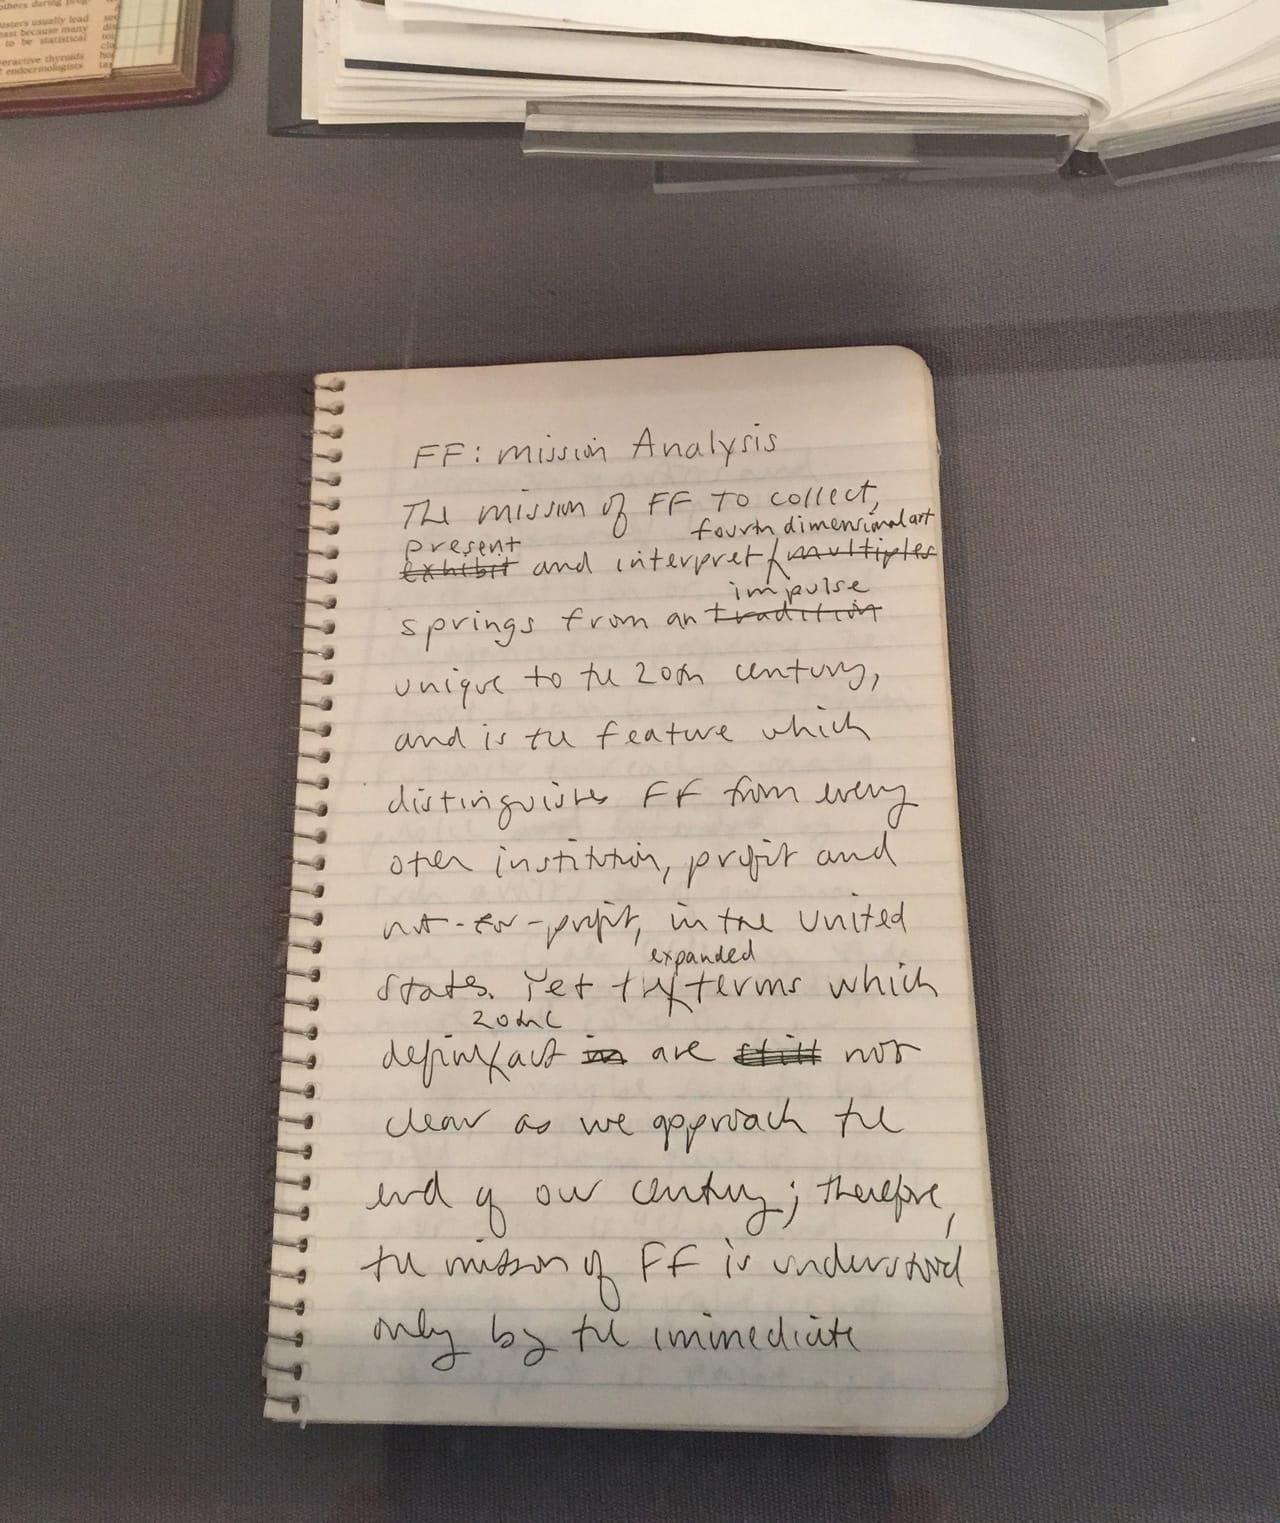 others during prog-
usters usually lead
east because many
to be statistical
eractive thyroids
endocrinologists
FF: Mission Analysis
The mission of FF to collect,
fourth dimensional art
present
exhibit and interpret multiples
impulse
springs from an tradition
unique to the 20th century,
and is the feature which
distinguishes FF from every
other institution, profit and
not-for-profit, in the United
States. Yet the terms which
expanded
20th C
define art in are still not
clear as we approach the
end of our century; therefore,
the mission of FF is understood
only by the immediate